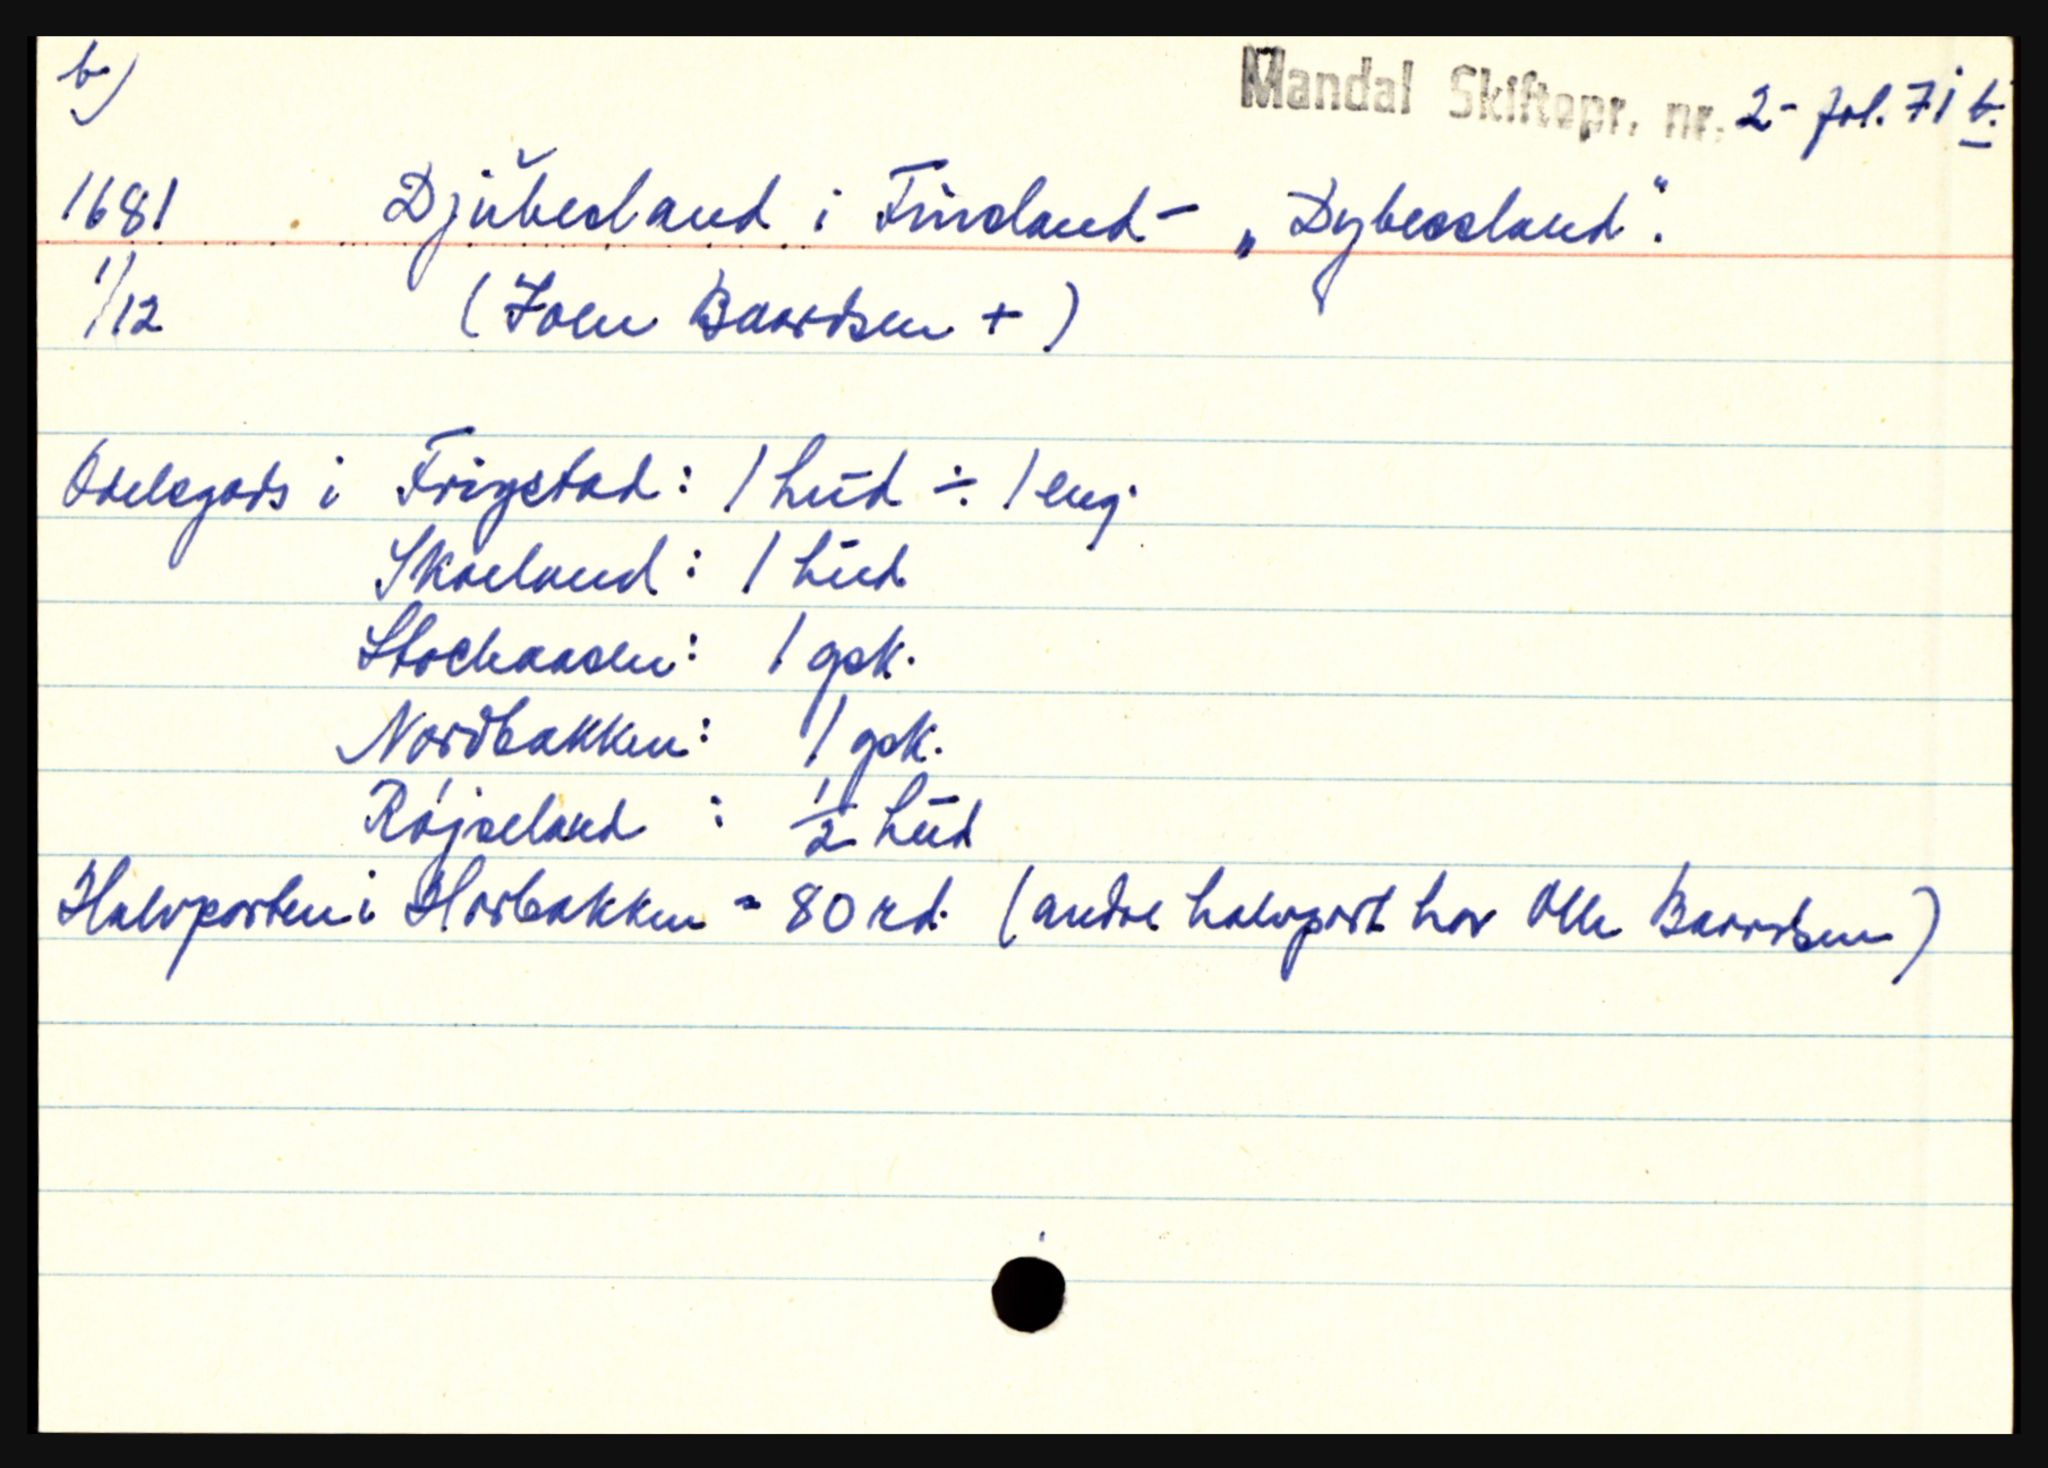 b)
Mandal Skiftepr. nr. 2 - fol. 71 b.
1681 Djubesland i Finsland - „Dybessland".
1/12 (Joen Baardsen +)
Odelsgods i Frigstad: 1 hud ÷ 1 eng.
Skaeland: 1 hud
Stochaasen: 1 gsk.
Nordbakken: 1 gsk.
Røjseland : 1/2 hud
Halvparten i Horbakken = 80 rd. (andre halvpart har Olle Baardsen)